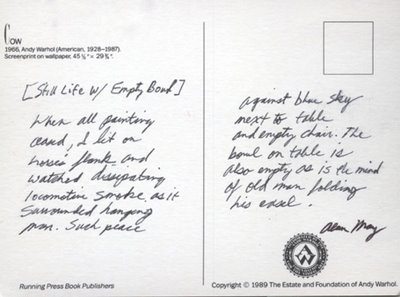 Cow
1966, Andy Warhol (American, 1928-1987).
Screenprint on wallpaper, 45 ½" × 29 ¾".
[Still Life w/ Empty Bowl]
When all painting
ceased, I lit on
horse's flank and
watched dissipating
locomotive smoke as it
surrounded hanging
man. Such peace
against blue sky
next to table
and empty chair. The
bowl on table is
also empty as is the mind
of old man folding
his easel.
Alan May
Running Press Book Publishers
Copyright © 1989 The Estate and Foundation of Andy Warhol.